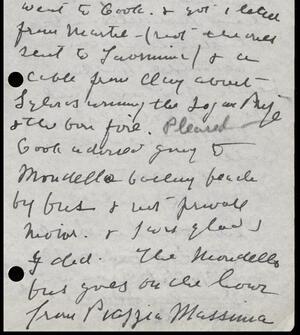 went to Cook. & got 1 letter
from Martel - (not the ones
sent to Taormina) & a
cable from Clay about
winning the Logan Prize
& the bon fire. Pleased -
Cook advised going to
Mondello bathing beach
by bus & not private
motor. & I was glad
I did. The Mondello
bus goes on the hour
from Piazzia Massima